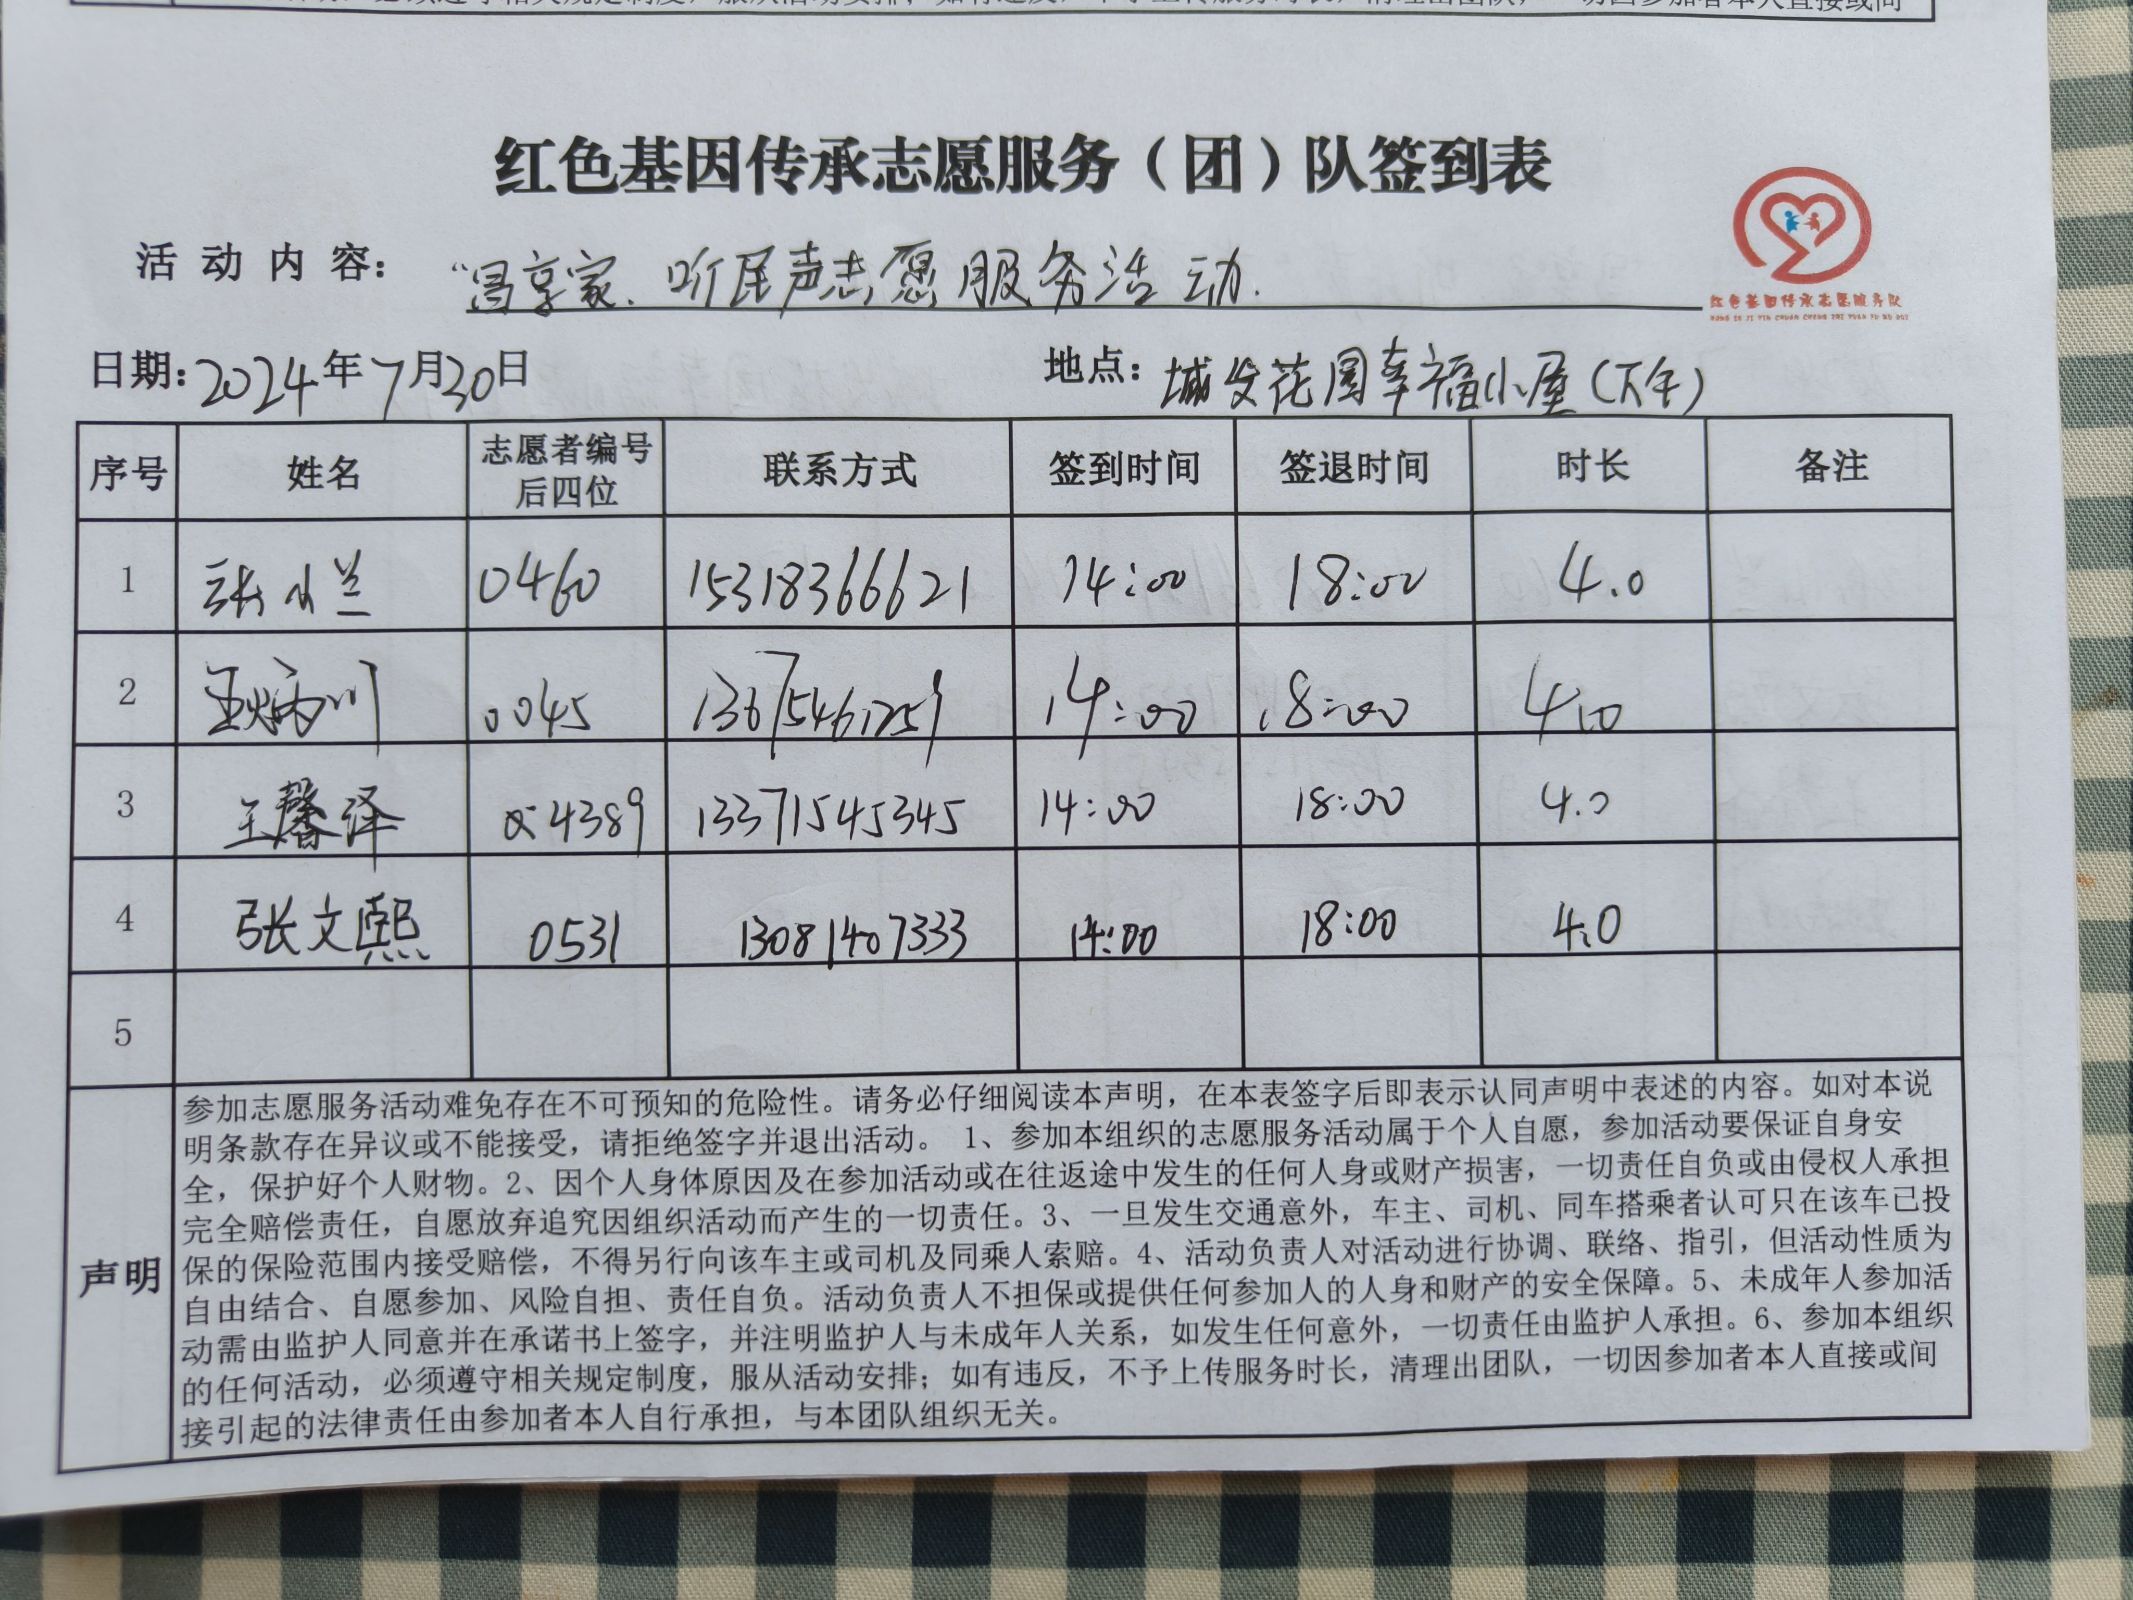 红色基因传承志愿服务（团）队签到表
红色基因传承志愿服务队
HONG SE JI YIN CHUAN CHENG ZHI YUAN FU WU DUI
活动内容： 享家、听民声志愿服务活动.
日期：2024年7月30日 地点：城发花园幸福小屋（下午）
序号 姓名 志愿者编号后四位 联系方式 签到时间 签退时间 时长 备注
1 张小兰 0460 15318366621 14:00 18:00 4.0
2 王炳川 0045 13675461259 14:00 18:00 4.0
3 王馨泽 4389 13371545345 14:00 18:00 4.0
4 张文熙 0531 13081407333 14:00 18:00 4.0
5
声明
参加志愿服务活动难免存在不可预知的危险性。请务必仔细阅读本声明，在本表签字后即表示认同声明中表述的内容。如对本说
明条款存在异议或不能接受，请拒绝签字并退出活动。 1、参加本组织的志愿服务活动属于个人自愿，参加活动要保证自身安
全，保护好个人财物。2、因个人身体原因及在参加活动或在往返途中发生的任何人身或财产损害，一切责任自负或由侵权人承担
完全赔偿责任，自愿放弃追究因组织活动而产生的一切责任。3、一旦发生交通意外，车主、司机、同车搭乘者认可只在该车已投
保的保险范围内接受赔偿，不得另行向该车主或司机及同乘人索赔。4、活动负责人对活动进行协调、联络、指引，但活动性质为
自由结合、自愿参加、风险自担、责任自负。活动负责人不担保或提供任何参加人的人身和财产的安全保障。5、未成年人参加活
动需由监护人同意并在承诺书上签字，并注明监护人与未成年人关系，如发生任何意外，一切责任由监护人承担。6、参加本组织
的任何活动，必须遵守相关规定制度，服从活动安排；如有违反，不予上传服务时长，清理出团队，一切因参加者本人直接或间
接引起的法律责任由参加者本人自行承担，与本团队组织无关。